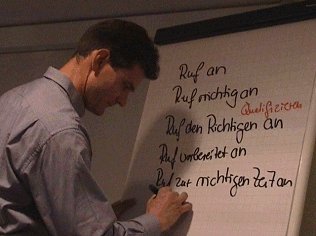 Ruf an
Ruf richtig an
Qualifizieren
Ruf den Richtigen an
Ruf vorbereitet an
Ruf zur richtigen Zeit an